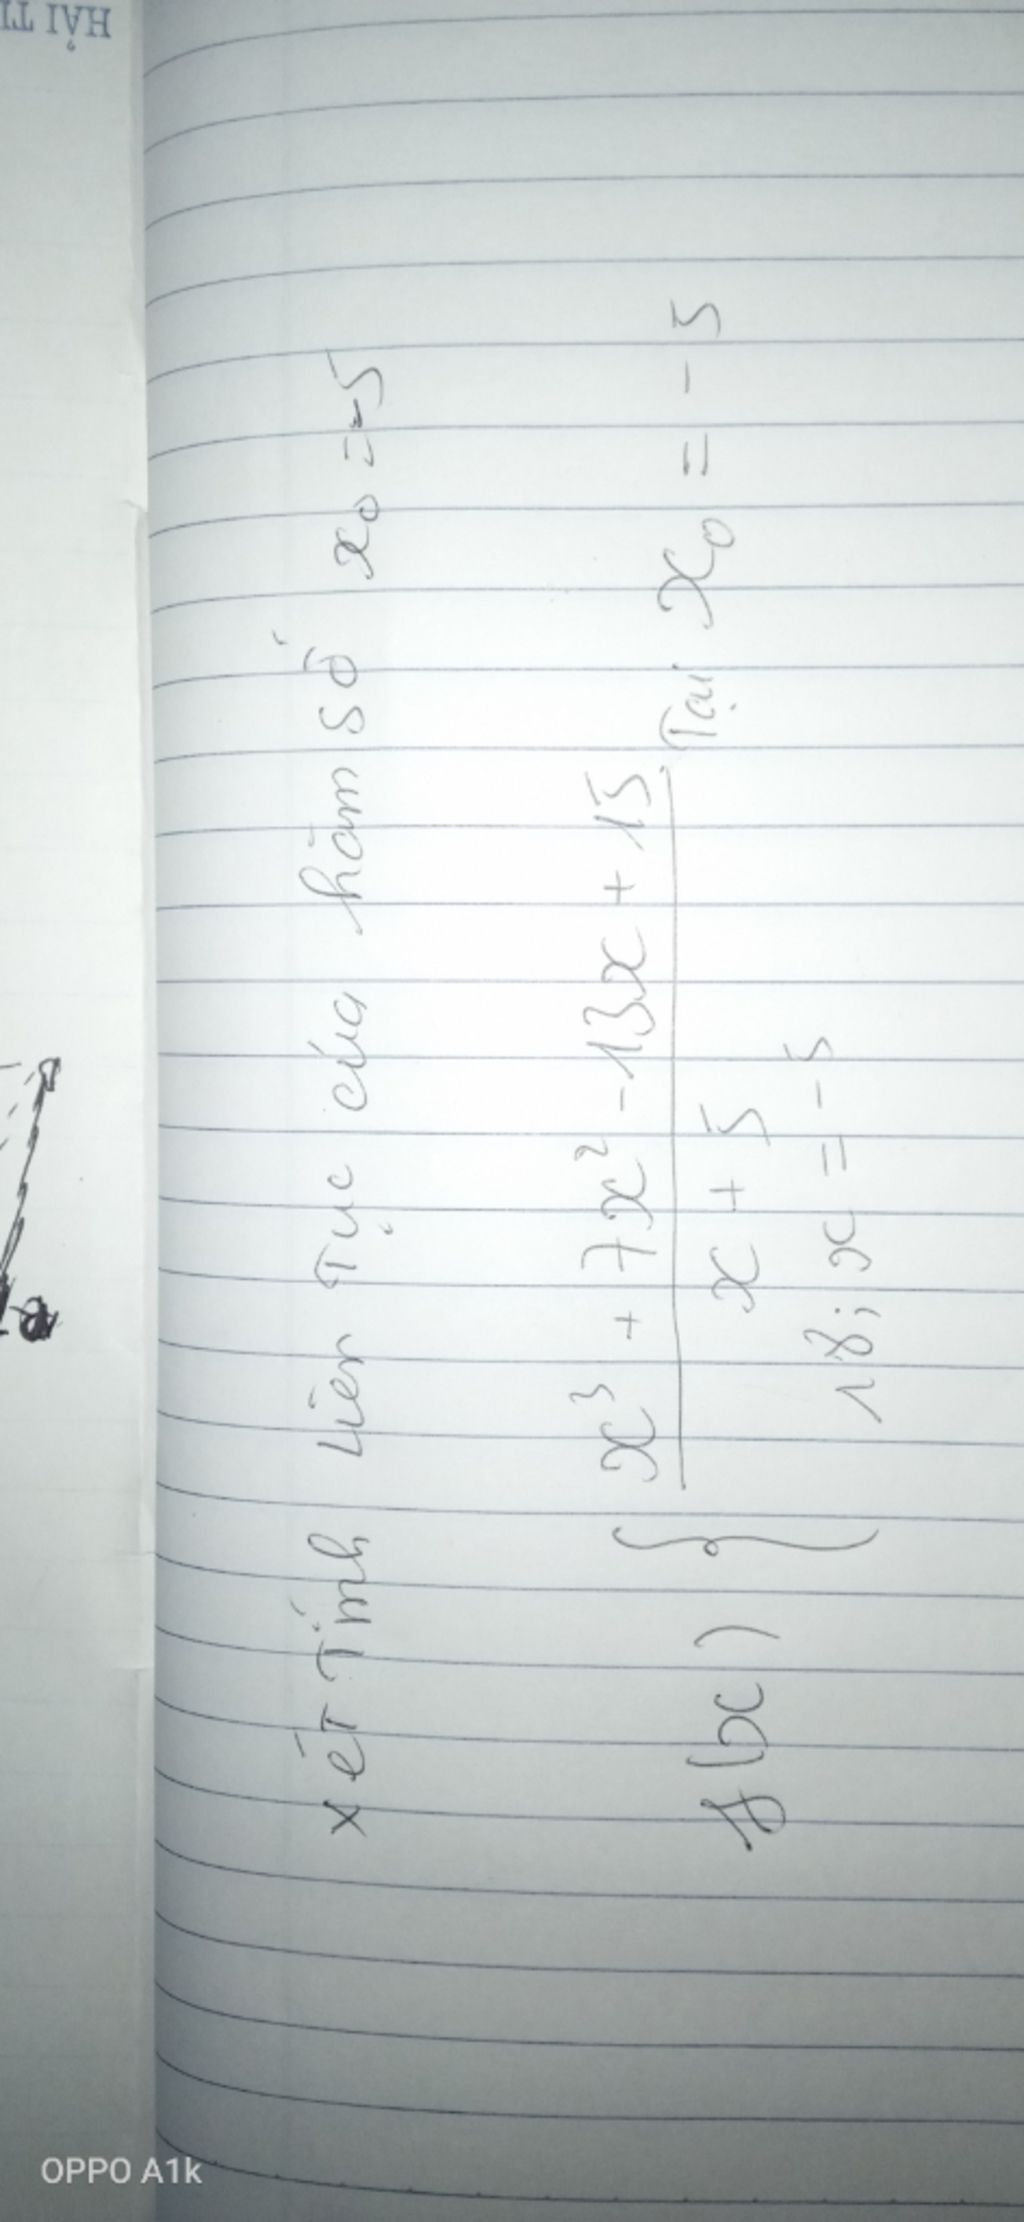 HẢI TI
xét Tính Liên Tục của hàm số x₀ = -5
f(x) { x³ + 7x² - 13x + 15 / x + 5 Tại x₀ = -5
18; x = -5
OPPO A1k